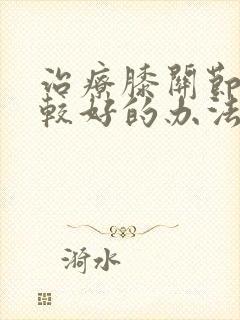 治療膝關節
較好的办法
漪水